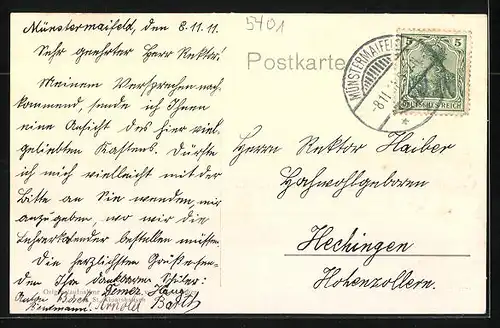 Münstermaifeld, den 8.11.11.
5401
Sehr geehrter Herr Rektor!
Meinem Versprechen nach-
kommend, sende ich Ihnen
eine Ansicht des hier viel-
geliebten Kastens. Dürfte
ich mich vielleicht mit der
Bitte an Sie wenden, mir
anzugeben, wo wir die
Lehrerkalender bestellen müssen.
Die herzlichsten Grüße sen-
den Ihre dankbaren Schüler:
Arnold Barth
Postkarte
MÜNSTERMAIFELD
8.11.
5 5
DEUTSCHES REICH
Herrn Rektor Haiber
Hochwohlgeboren
Hechingen
Hohenzollern.